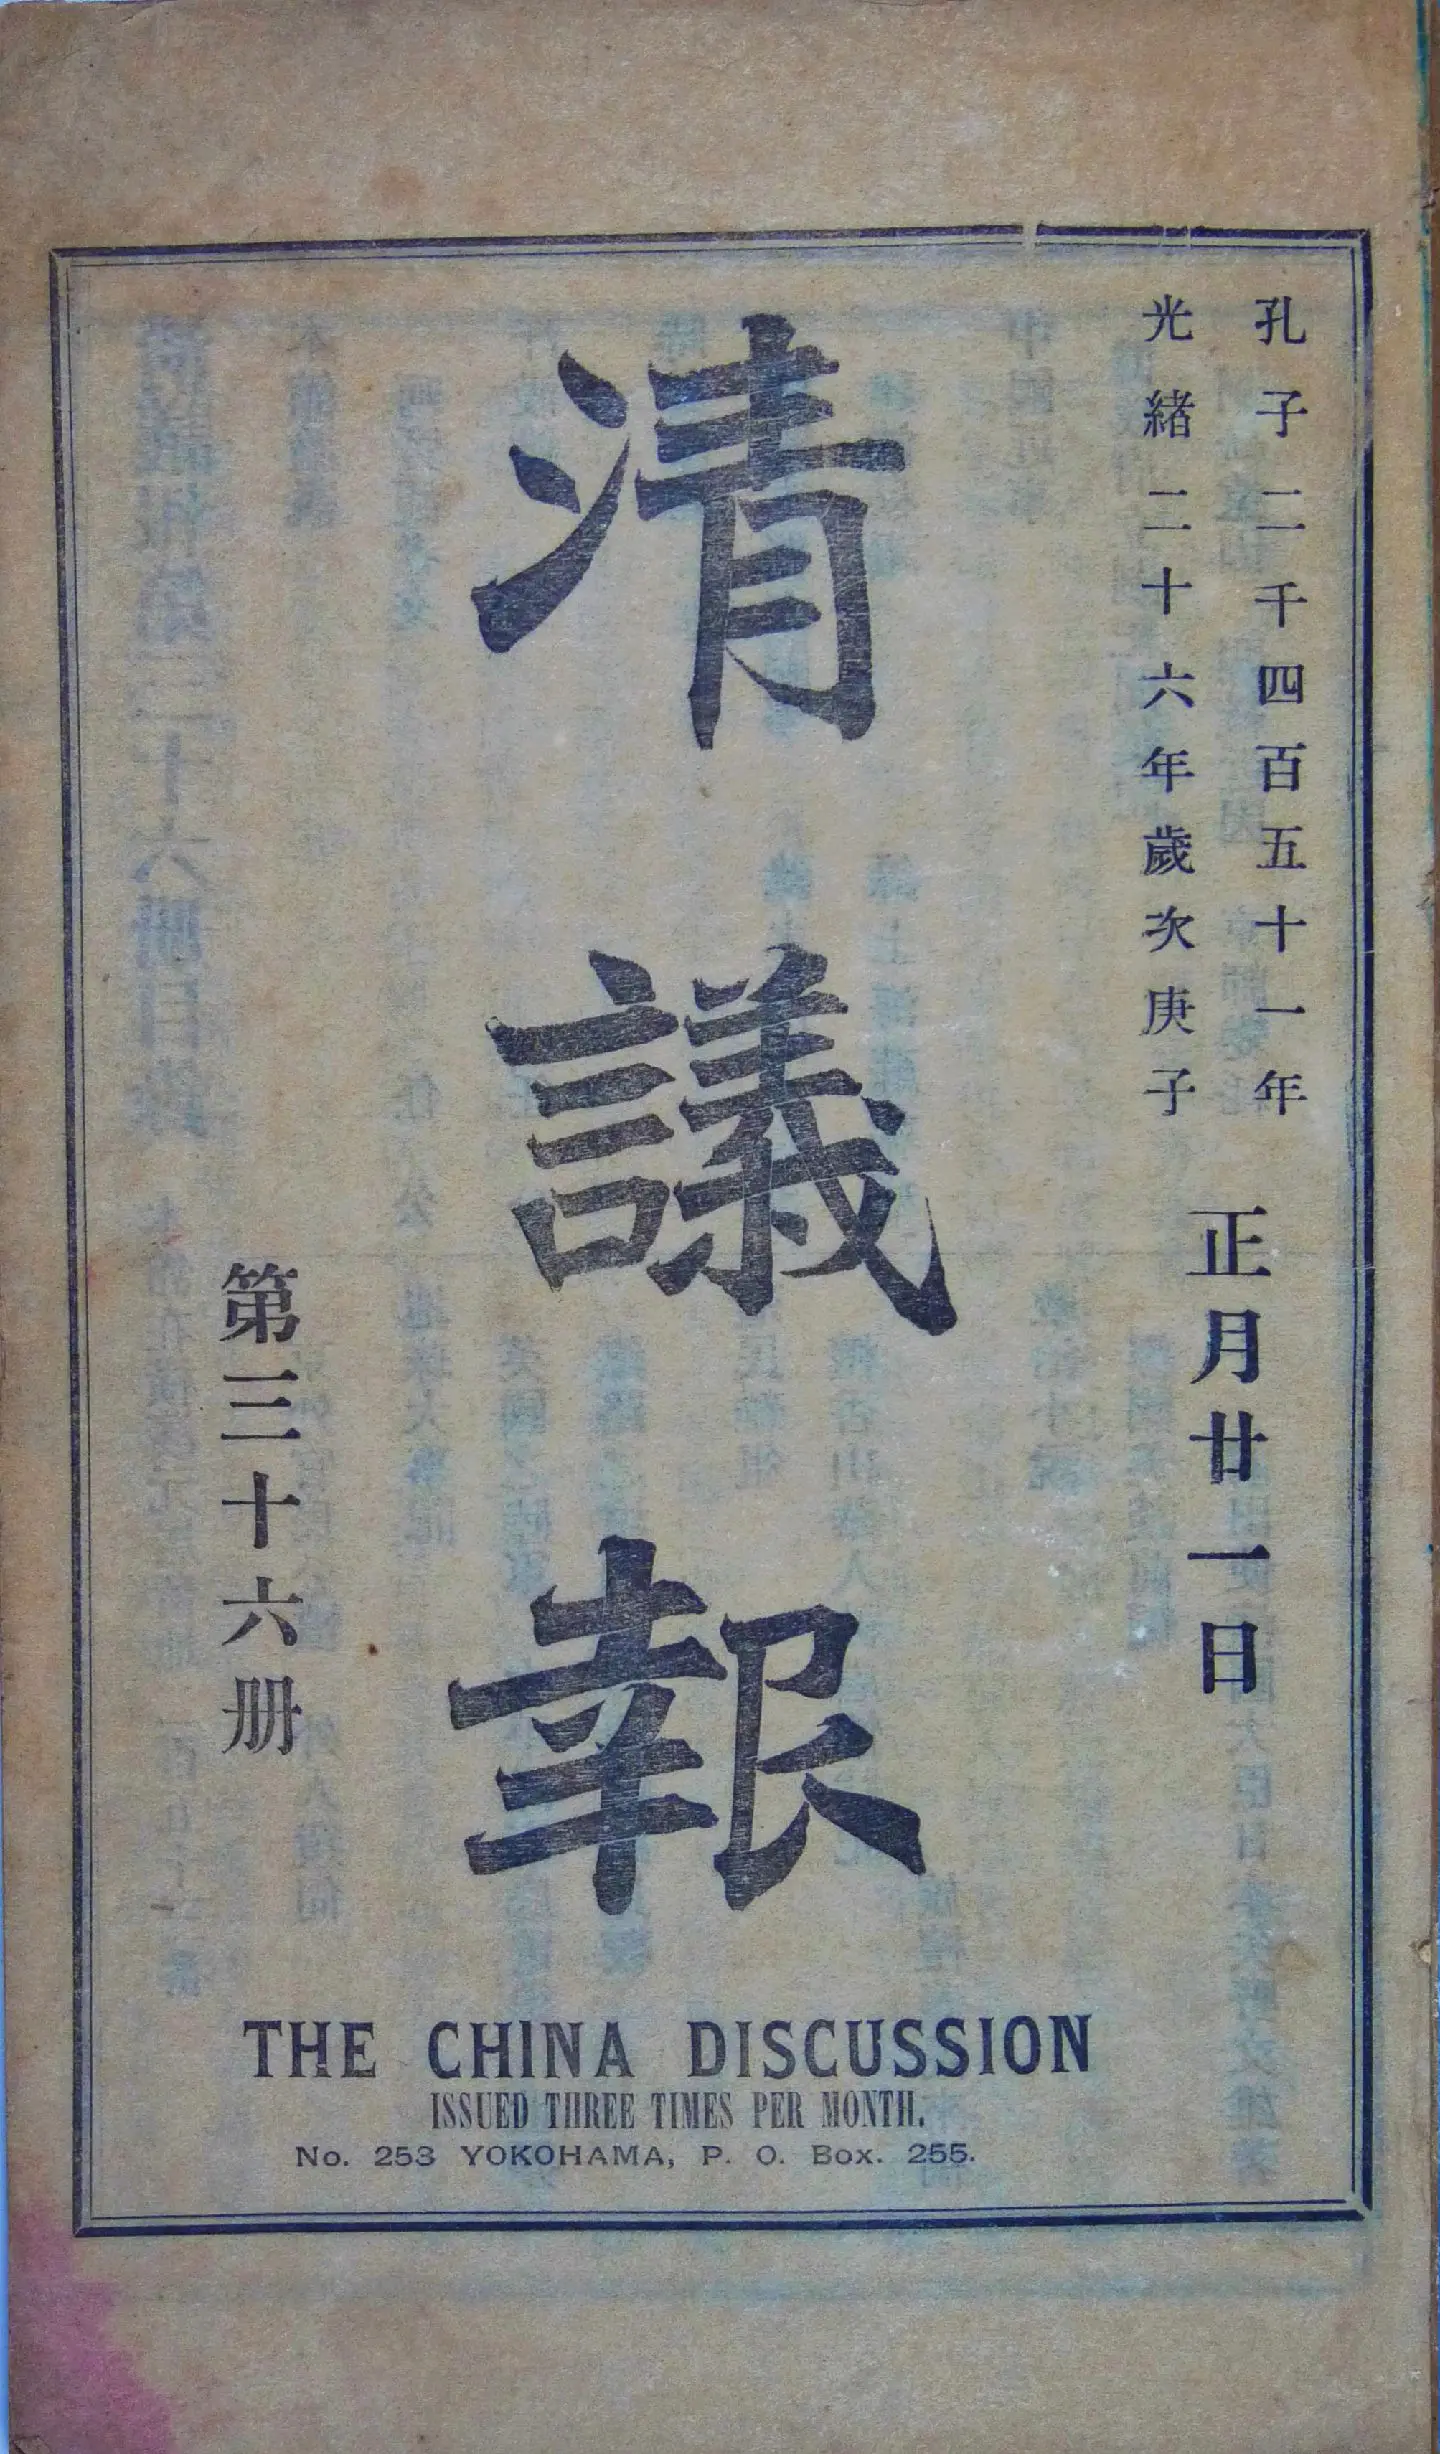 孔子二千四百五十一年
光緒二十六年歲次庚子
正月廿一日
清議報
第三十六册
THE CHINA DISCUSSION
ISSUED THREE TIMES PER MONTH.
No. 253 YOKOHAMA, P. O. Box. 255.